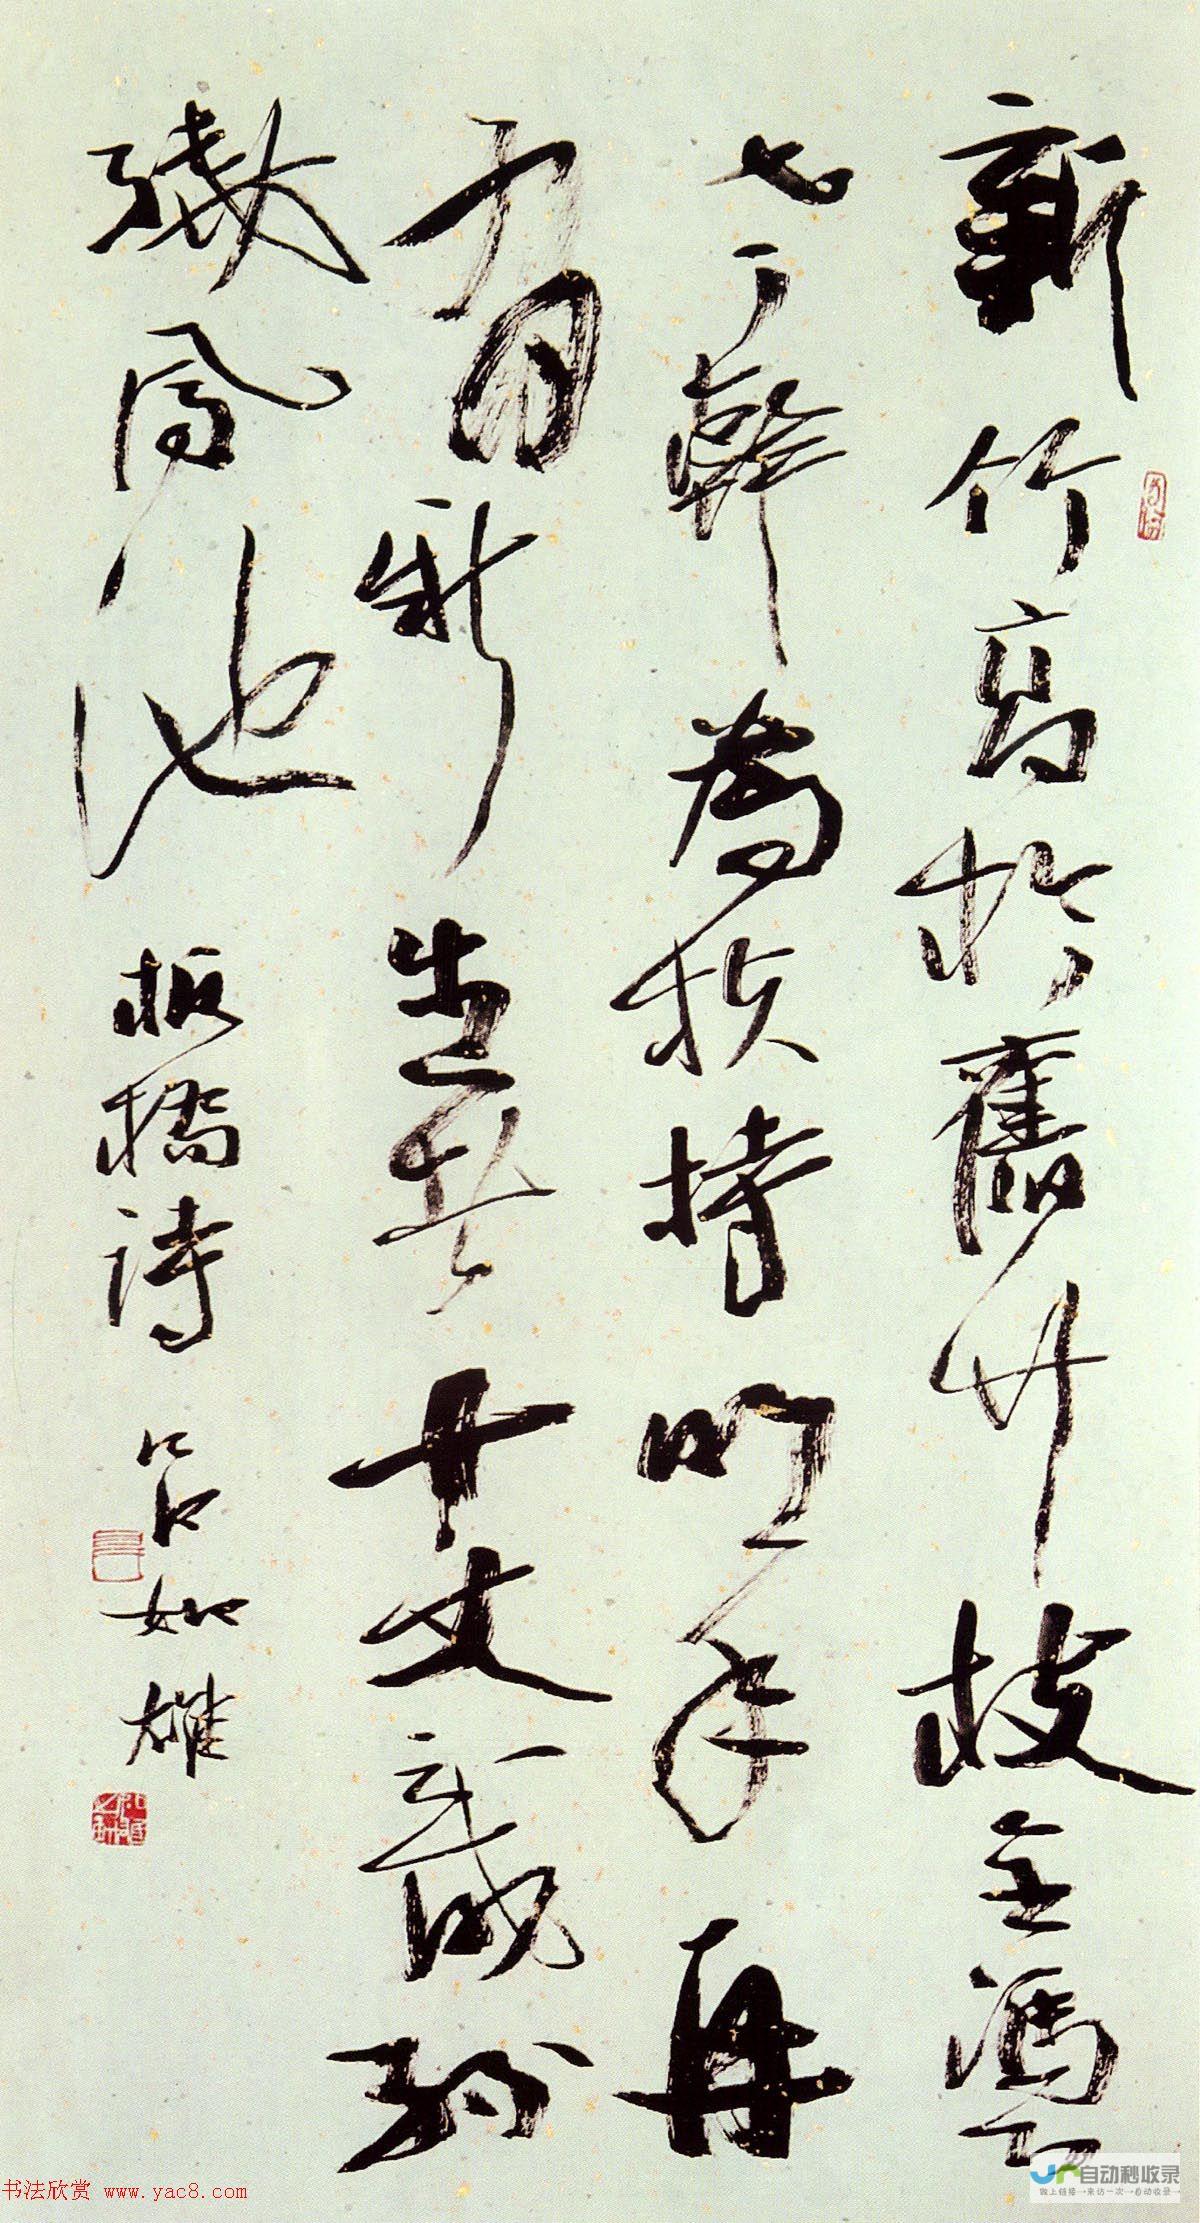 新竹高於舊竹枝全憑
老幹為扶持明年再
有新生者十丈龍孫
繞鳳池 板橋詩 呂如雄
书法欣赏 www.yac8.com
自动秒收录
做上链接→来访一次→自动收录